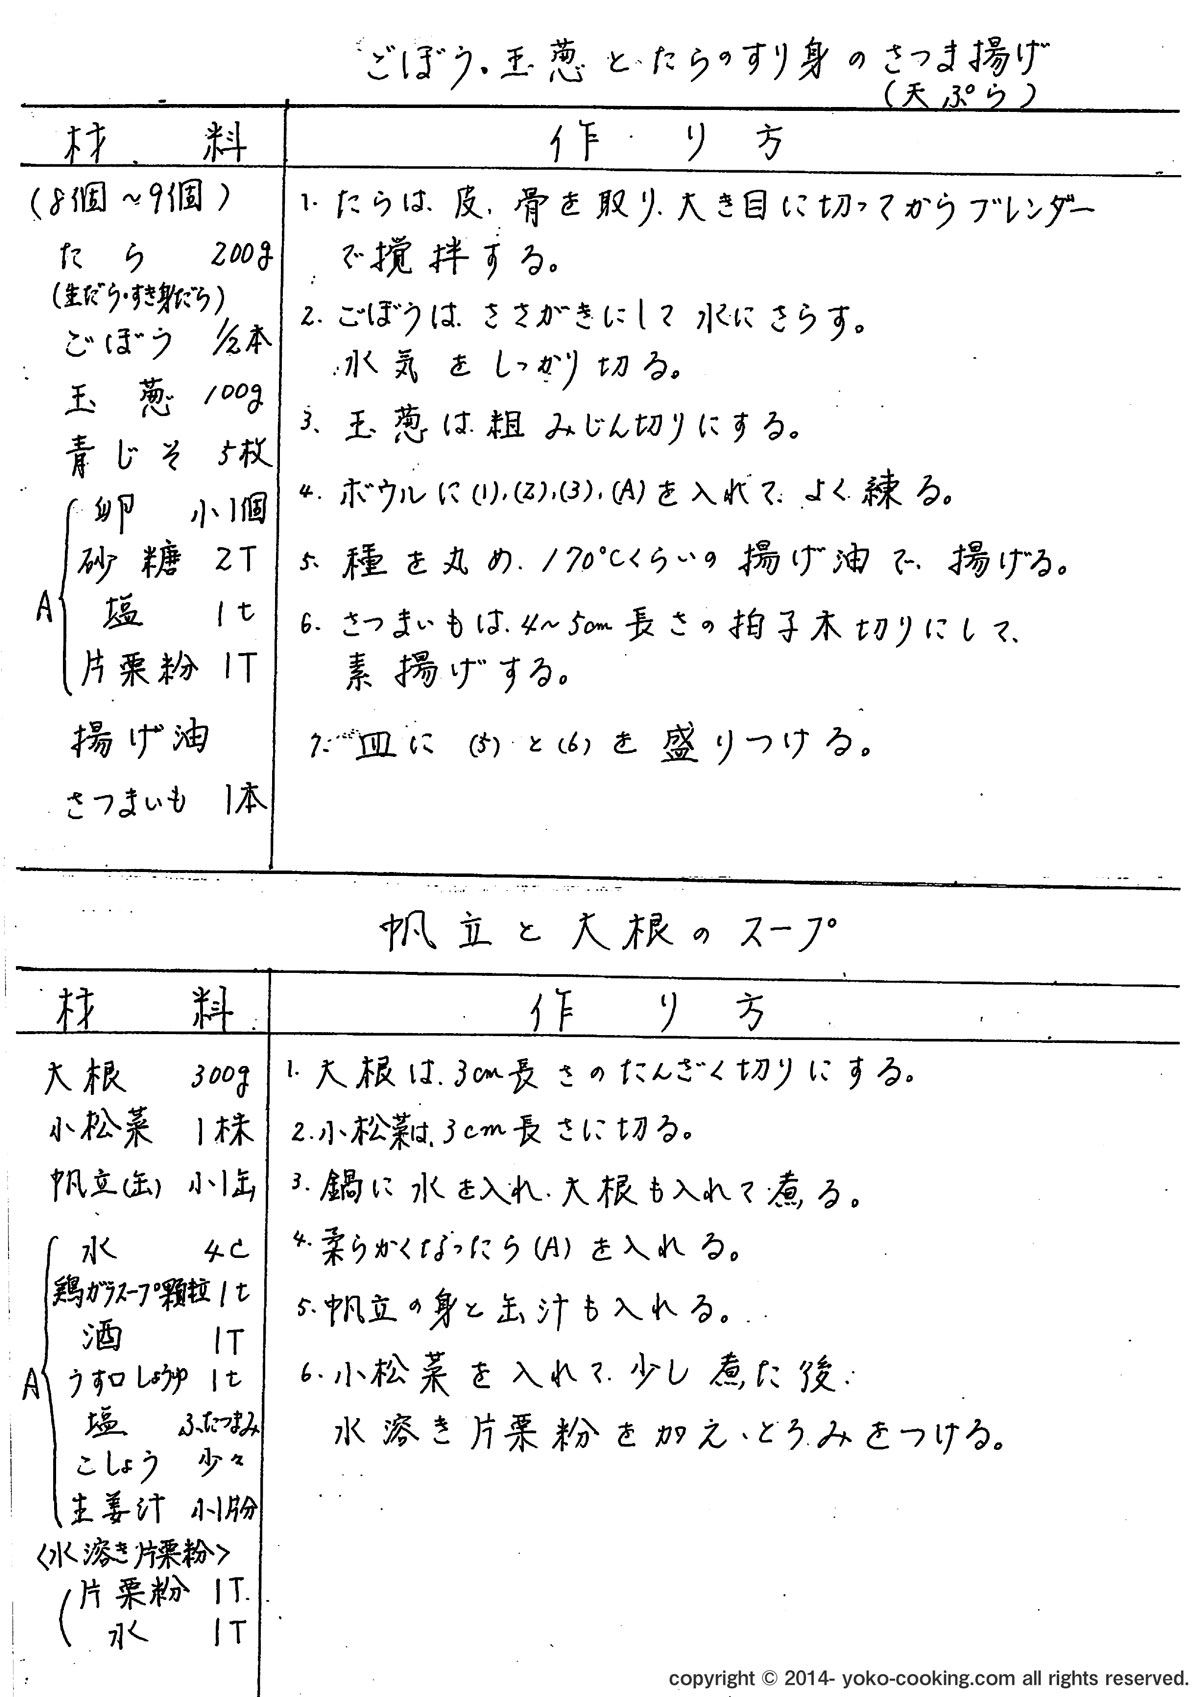 ごぼう・玉葱とたらのすり身のさつま揚げ
(天ぷら)
材 料
作り方
(8個~9個)
たら 200g
(生だら・すき身だら)
ごぼう 1/2本
玉葱 100g
青じそ 5枚
A
卵 小1個
砂糖 2T
塩 1t
片栗粉 1T
揚げ油
さつまいも 1本
1. たらは、皮、骨を取り、大き目に切ってからブレンダー
で撹拌する。
2. ごぼうは、ささがきにして水にさらす。
水気をしっかり切る。
3. 玉葱は粗みじん切りにする。
4. ボウルに(1),(2),(3),(A)を入れて、よく練る。
5. 種を丸め、170℃くらいの揚げ油で、揚げる。
6. さつまいもは、4~5cm長さの拍子木切りにして、
素揚げする。
7. 皿に(5)と(6)を盛りつける。
帆立と大根のスープ
材 料
作り方
大根 300g
小松菜 1株
帆立(缶) 小1缶
A
水 4C
鶏ガラスープ顆粒 1t
酒 1T
うす口しょうゆ 1t
塩 ふたつまみ
こしょう 少々
生姜汁 小1片分
<水溶き片栗粉>
片栗粉 1T
水 1T
1. 大根は、3cm長さのたんざく切りにする。
2. 小松菜は、3cm長さに切る。
3. 鍋に水を入れ、大根も入れて煮る。
4. 柔らかくなったら(A)を入れる。
5. 帆立の身と缶汁も入れる。
6. 小松菜を入れて、少し煮た後、
水溶き片栗粉を加え、とろみをつける。
copyright © 2014- yoko-cooking.com all rights reserved.